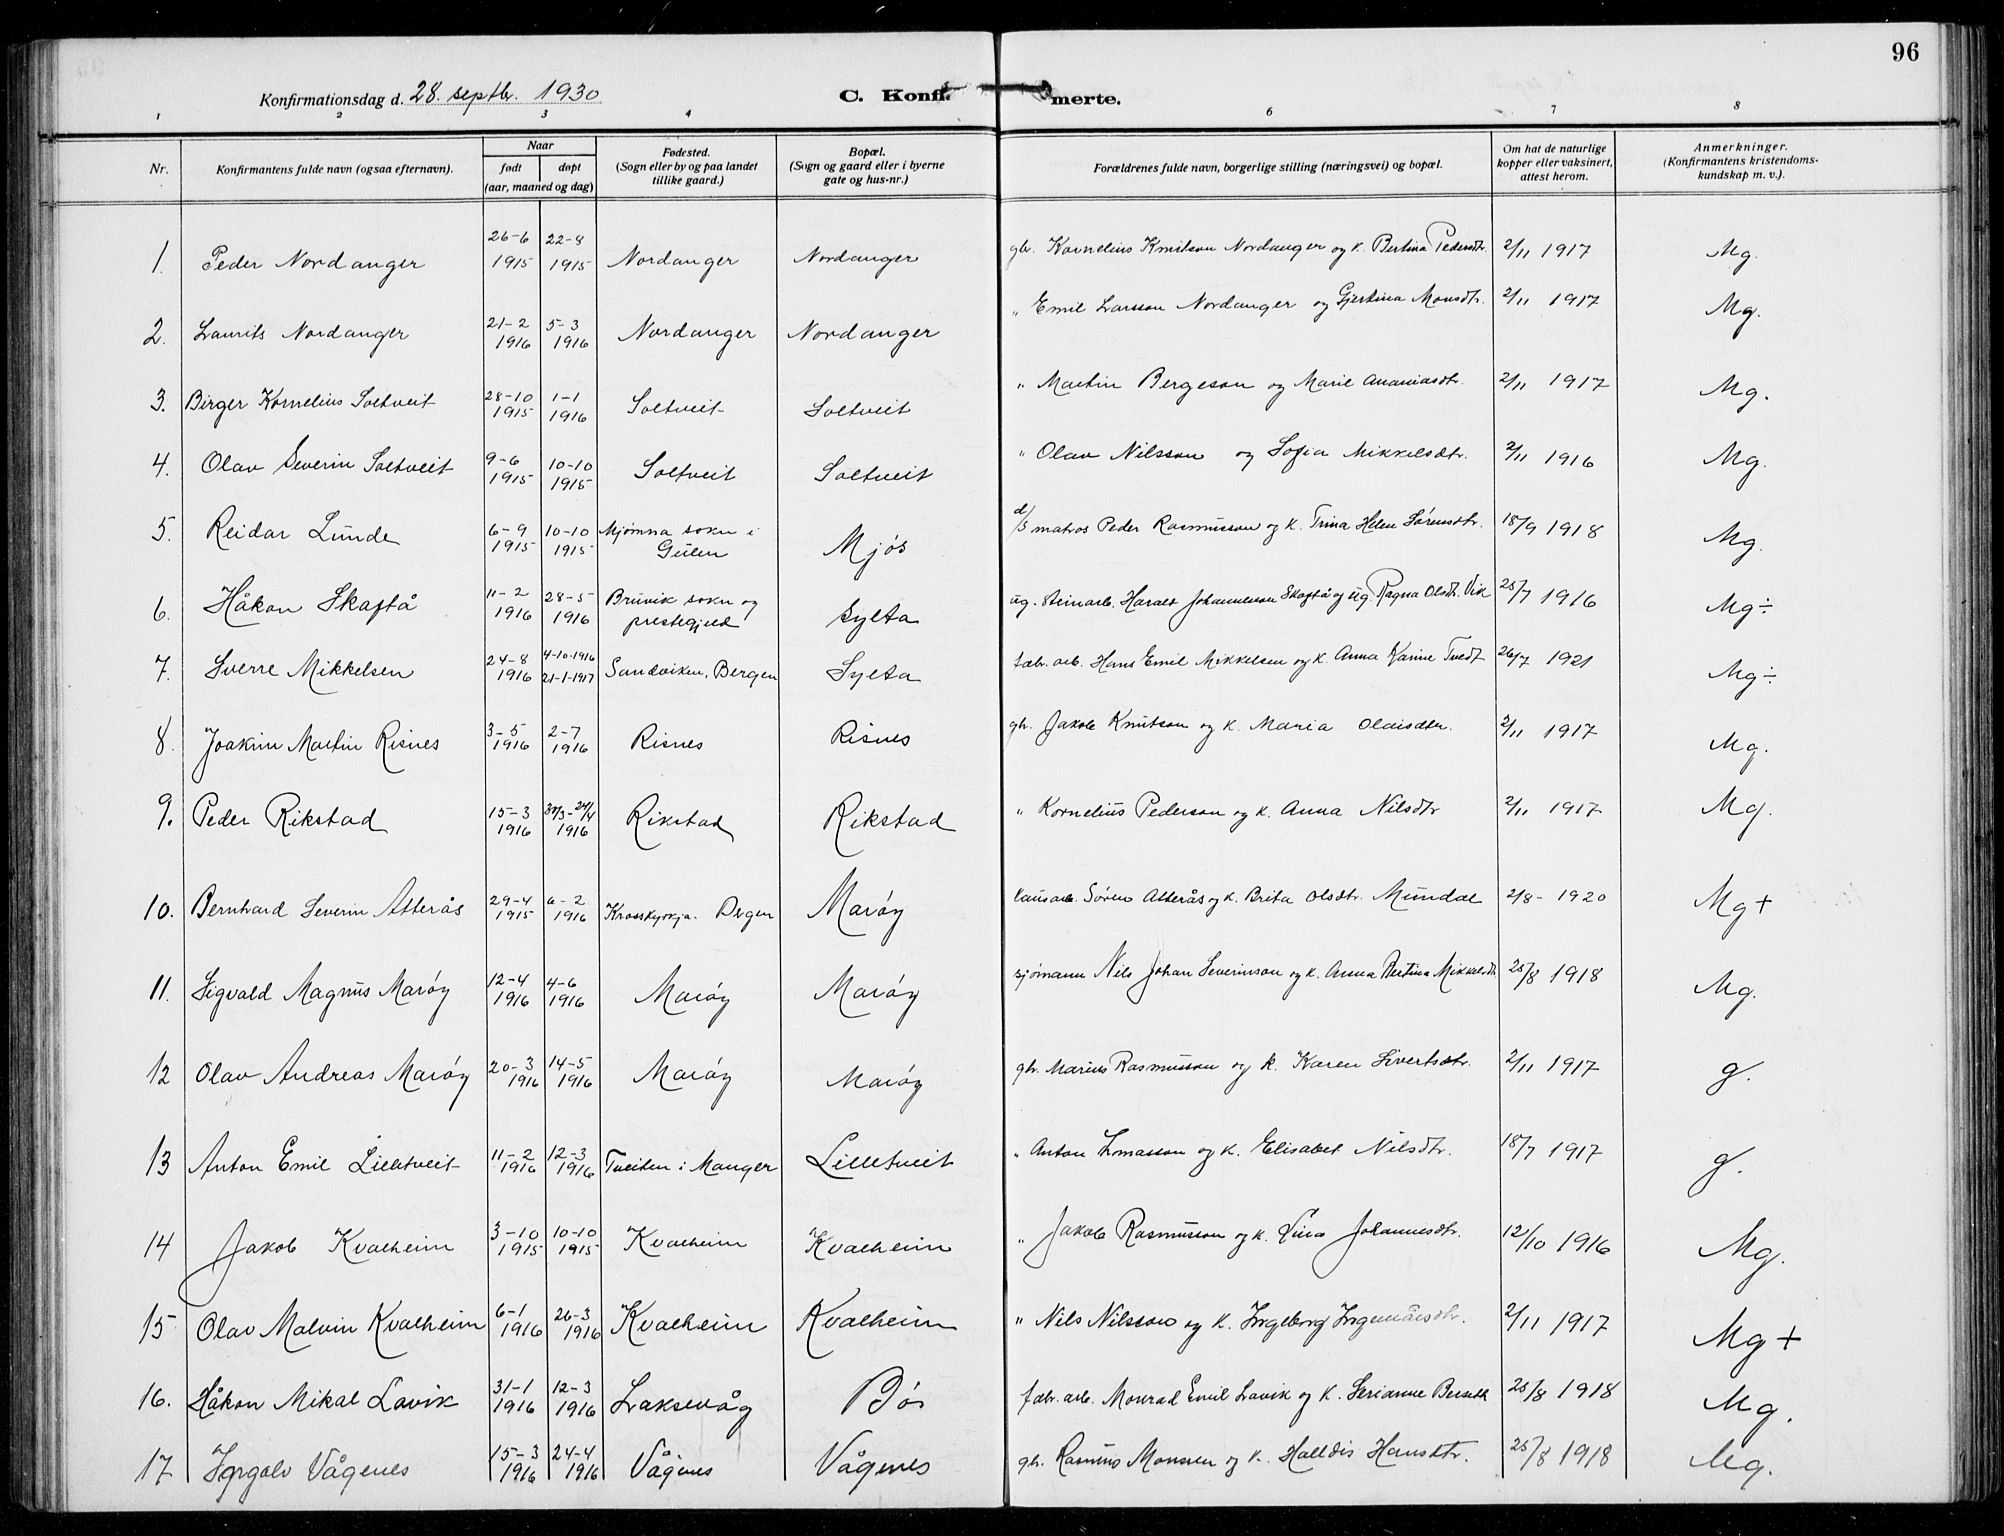 96
Konfirmationsdag d. 28. septbr. 1930 C. Konfi merte.
1 2 3 4 6 7 8
Nr. Konfirmantens fulde navn (ogsaa efternavn). Naar født døpt (aar, maaned og dag) Fødested. (Sogn eller by og paa landet tillike gaard.) Bopæl. (Sogn og gaard eller i byerne gate og hus-nr.) Forældrenes fulde navn, borgerlige stilling (næringsvei) og bopæl. Om hat de naturlige kopper eller vaksinert, attest herom. Anmerkninger. (Konfirmantens kristendoms-kundskap m. v.).
1. Peder Nordanger 26-6 1915 22-8 1915 Nordanger Nordanger gbr. Kornelius Knutson Nordanger og k. Bertina Pedersdtr. 2/11 1917 Mg.
2. Laurits Nordanger 21-2 1916 5-3 1916 Nordanger Nordanger " Emil Larsson Nordanger og Gjertina Monsdtr. 2/11 1917 Mg.
3. Birger Kornelius Soltveit 28-10 1915 1-1 1916 Soltveit Soltveit " Martin Bergeson og Marie Ananiasdtr. 2/11 1917 Mg.
4. Olav Severin Soltveit 9-6 1915 10-10 1915 Soltveit Soltveit " Olav Nilsson og Sofia Mikkelsdtr. 2/11 1916 Mg.
5. Reidar Lunde 6-9 1915 10-10 1915 Mjømna sokn i Gulen Mjøs d/s matros Peder Rasmusson og k. Trina Helen Sørensdtr. 18/9 1918 Mg.
6. Håkon Skaftå 11-2 1916 28-5 1916 Bruvik sokn og prestegjeld Sylta ug. steinarb. Harald Johannesson Skaftå og ug. Ragna Olsdtr. Vik 25/7 1916 Mg÷
7. Sverre Mikkelsen 24-8 1916 4-10-1916 21-1-1917 Sandviken, Bergen Sylta fabr. arb. Hans Emil Mikkelsen og k. Anna Karine Tvedt 26/7 1921 Mg÷
8. Joakim Martin Risnes 3-5 1916 2-7 1916 Risnes Risnes gbr. Jakob Knutson og k. Maria Olaisdtr. 2/11 1917 Mg.
9. Peder Rikstad 15-3 1916 30/3-24/4 1916 Rikstad Rikstad " Kornelius Pederson og k. Anna Nilsdtr 2/11 1917 Mg.
10. Bernhard Severin Atterås 29-4 1915 6-2 1916 Krosskyrkja. Bergen Marøy Søren Atterås og k. Brita Olsdtr. Mundal 2/8- 1920 Mg+
11. Sigvald Magnus Marøy 12-4 1916 4-6 1916 Marøy Marøy sjømann Nils Johan Severinson og k. Anna Bertina Mikkelsdtr 25/8 1918 Mg.
12 Olav Andreas Marøy 20-3 1916 14-5 1916 Marøy Marøy gbr. Marius Rasmusson og k. Karen Sivertsdtr. 2/11 1917 g.
13 Anton Emil Lilletveit 11-2 1916 12-3 1916 Tveiten i Manger Lilletveit " Anton Tomasson og k. Elisabet Nilsdtr. 18/7 1917 g.
14 Jakob Kvalheim 3-10 1915 10-10 1915 Kvalheim Kvalheim " Jakob Rasmusson og k. Lina Johannesdtr. 12/10 1916 Mg.
15 Olav Malvin Kvalheim 6-1 1916 26-3 1916 Kvalheim Kvalheim " Nils Nilsson og k. Ingeborg Ingemarsdtr. 2/11 1917 Mg+
16. Håkon Mikal Lavik 31-1 1916 12-3 1916 Laksevåg Bøs fabr. arb. Monrad Emil Lavik og k. Serianne Berseth 25/8 1918 Mg.
17 Ingolv Vågenes 15-3 1916 24-4 1916 Vågenes Vågenes gbr. Rasmus Monsen og k. Halldis Hansdtr. 25/8 1918 Mg.